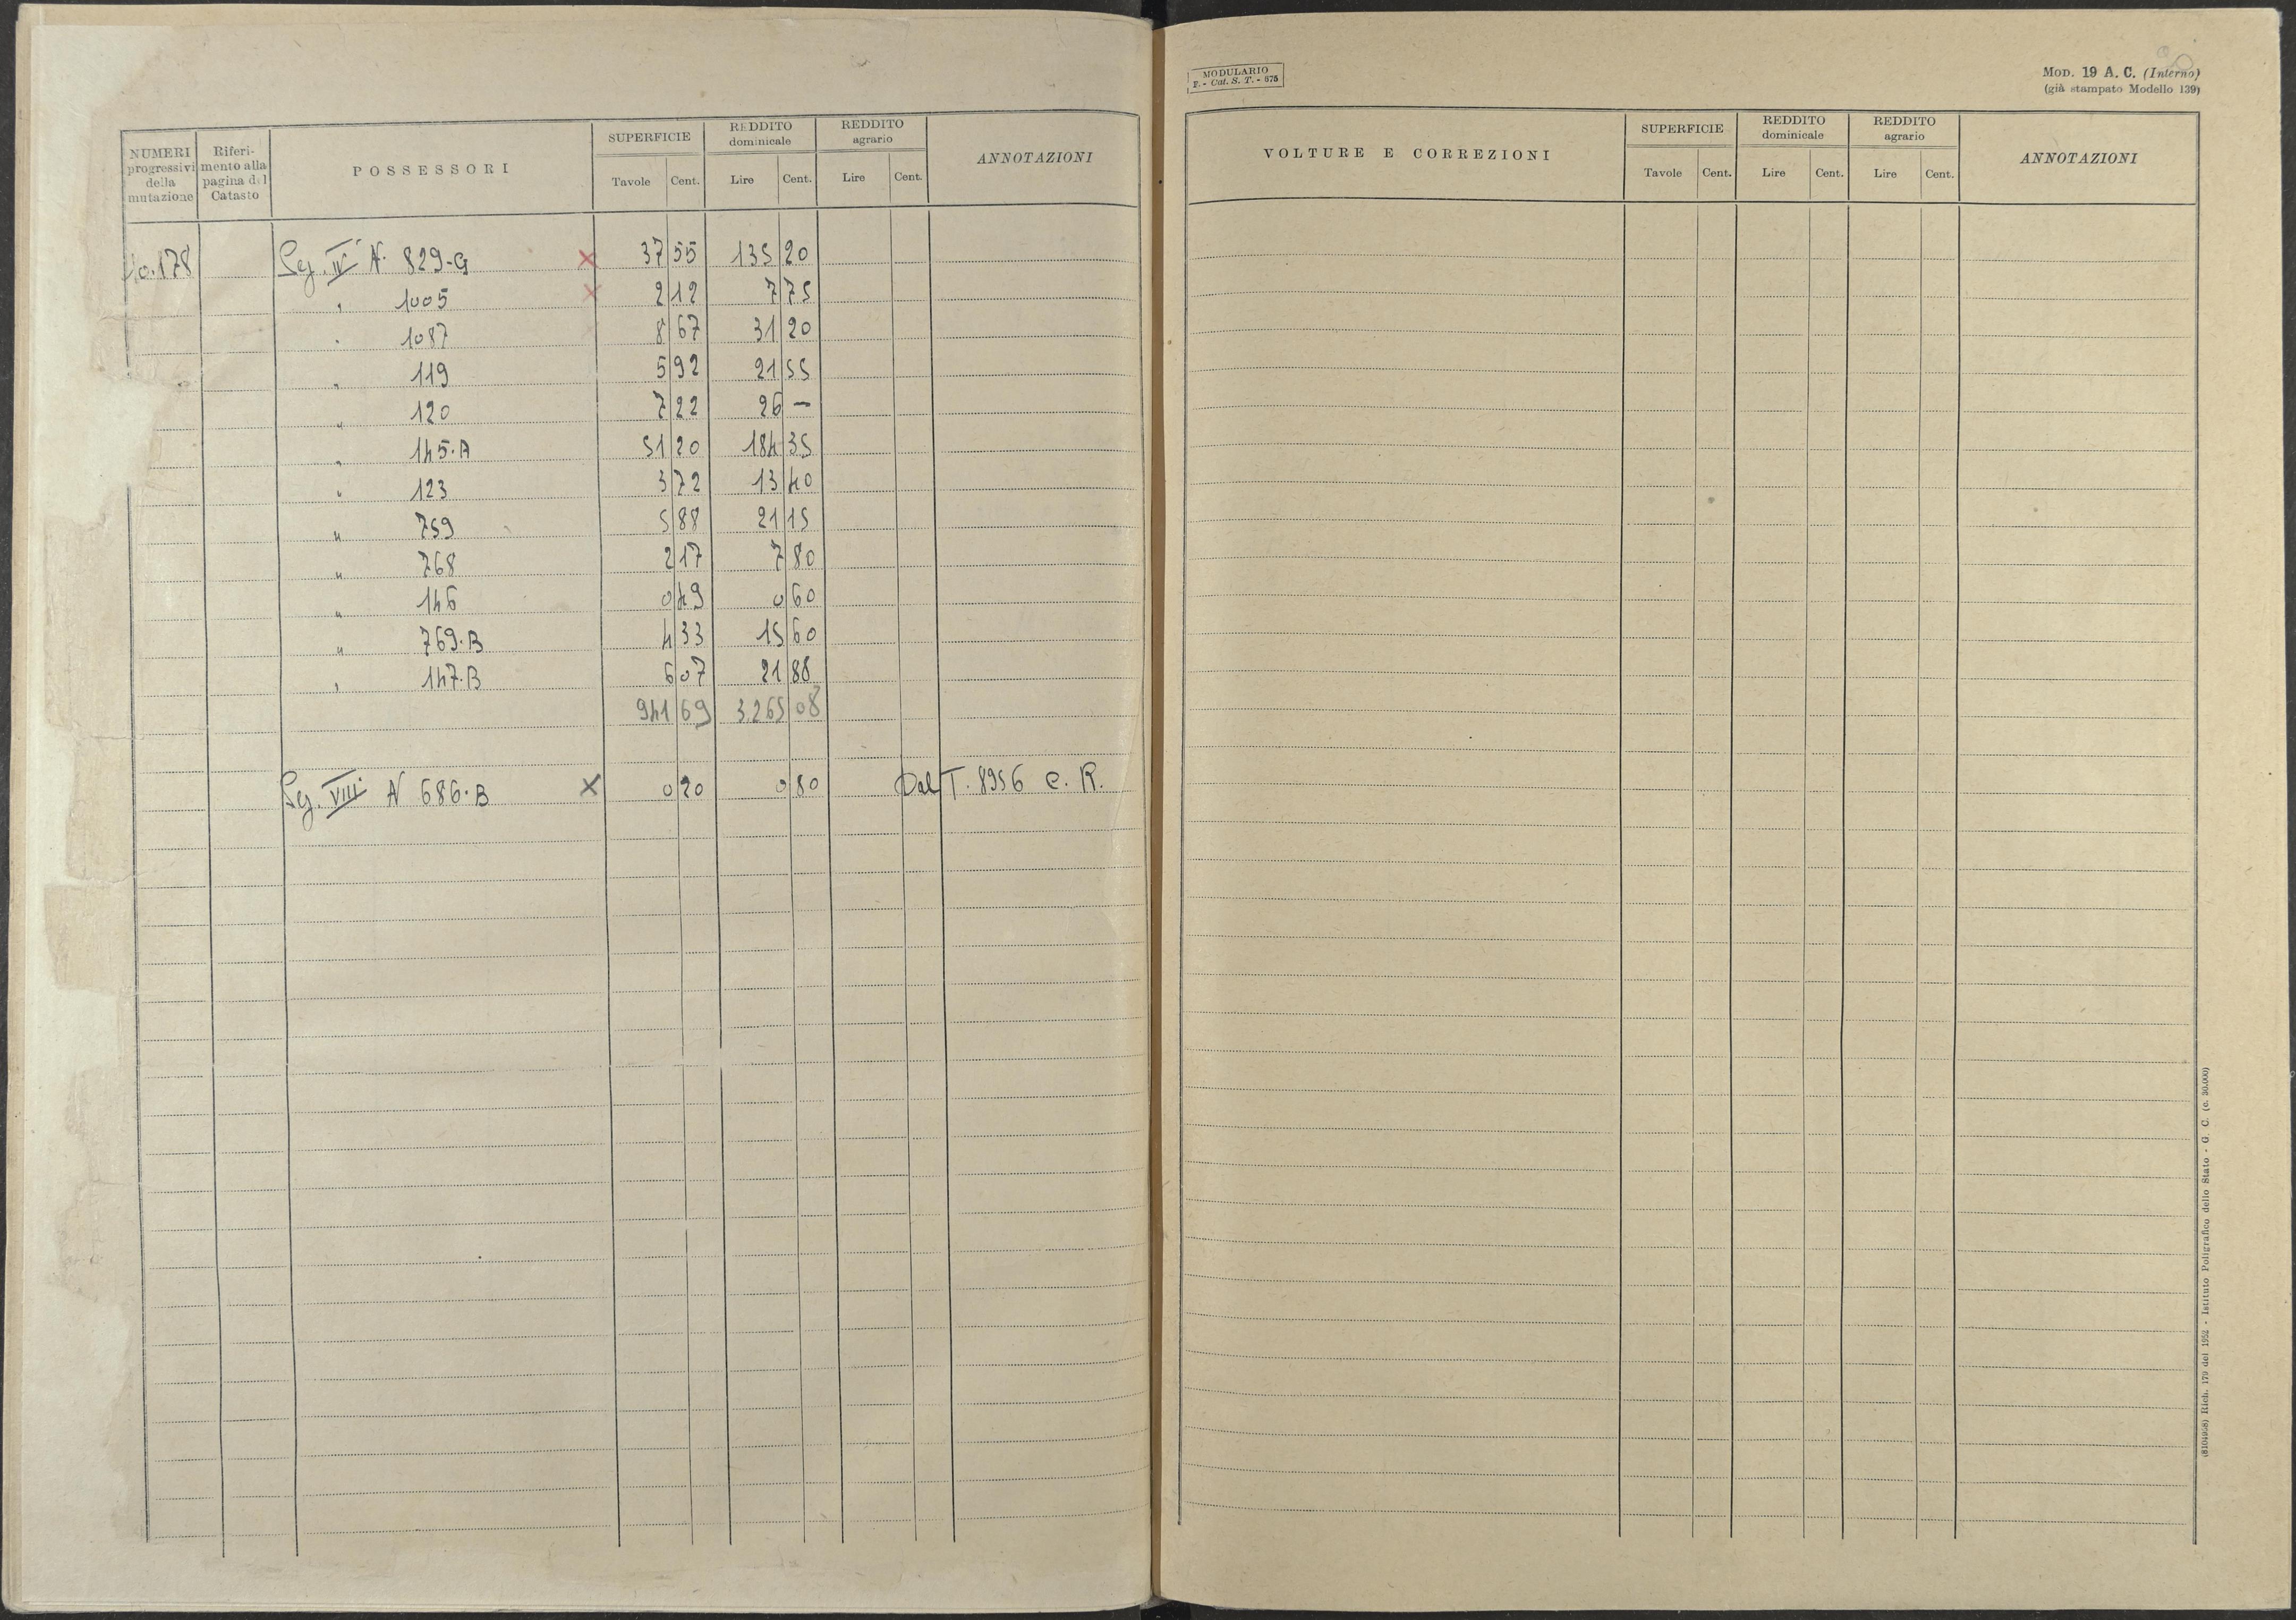 NUMERI progressivi della mutazione | Riferimento alla pagina del Catasto | POSSESSORI | SUPERFICIE Tavole Cent. | REDDITO dominicale Lire Cent. | REDDITO agrario Lire Cent. | ANNOTAZIONI
178 Seg. IV N. 829-G × 37 55 135 20
" 1005 × 2 12 7 75
" 1087 8 67 31 20
" 119 5 92 21 55
" 120 7 22 26 —
" 145-A 51 20 184 35
" 123 3 72 13 40
" 759 5 88 21 15
" 768 2 17 7 80
" 146 0 49 0 60
" 769-B 4 33 15 60
" 147-B 6 07 21 88
941 69 3.265 08
Seg. VIII N 686-B × 0 20 0 80 Dal T. 8956 C. R.
MODULARIO
F. - Cat. S. T. - 675
MOD. 19 A. C. (Interno)
(già stampato Modello 139)
VOLTURE E CORREZIONI | SUPERFICIE Tavole Cent. | REDDITO dominicale Lire Cent. | REDDITO agrario Lire Cent. | ANNOTAZIONI
Rich. 179 del 1952 - Istituto Poligrafico dello Stato - G. C. (c. 30.000)